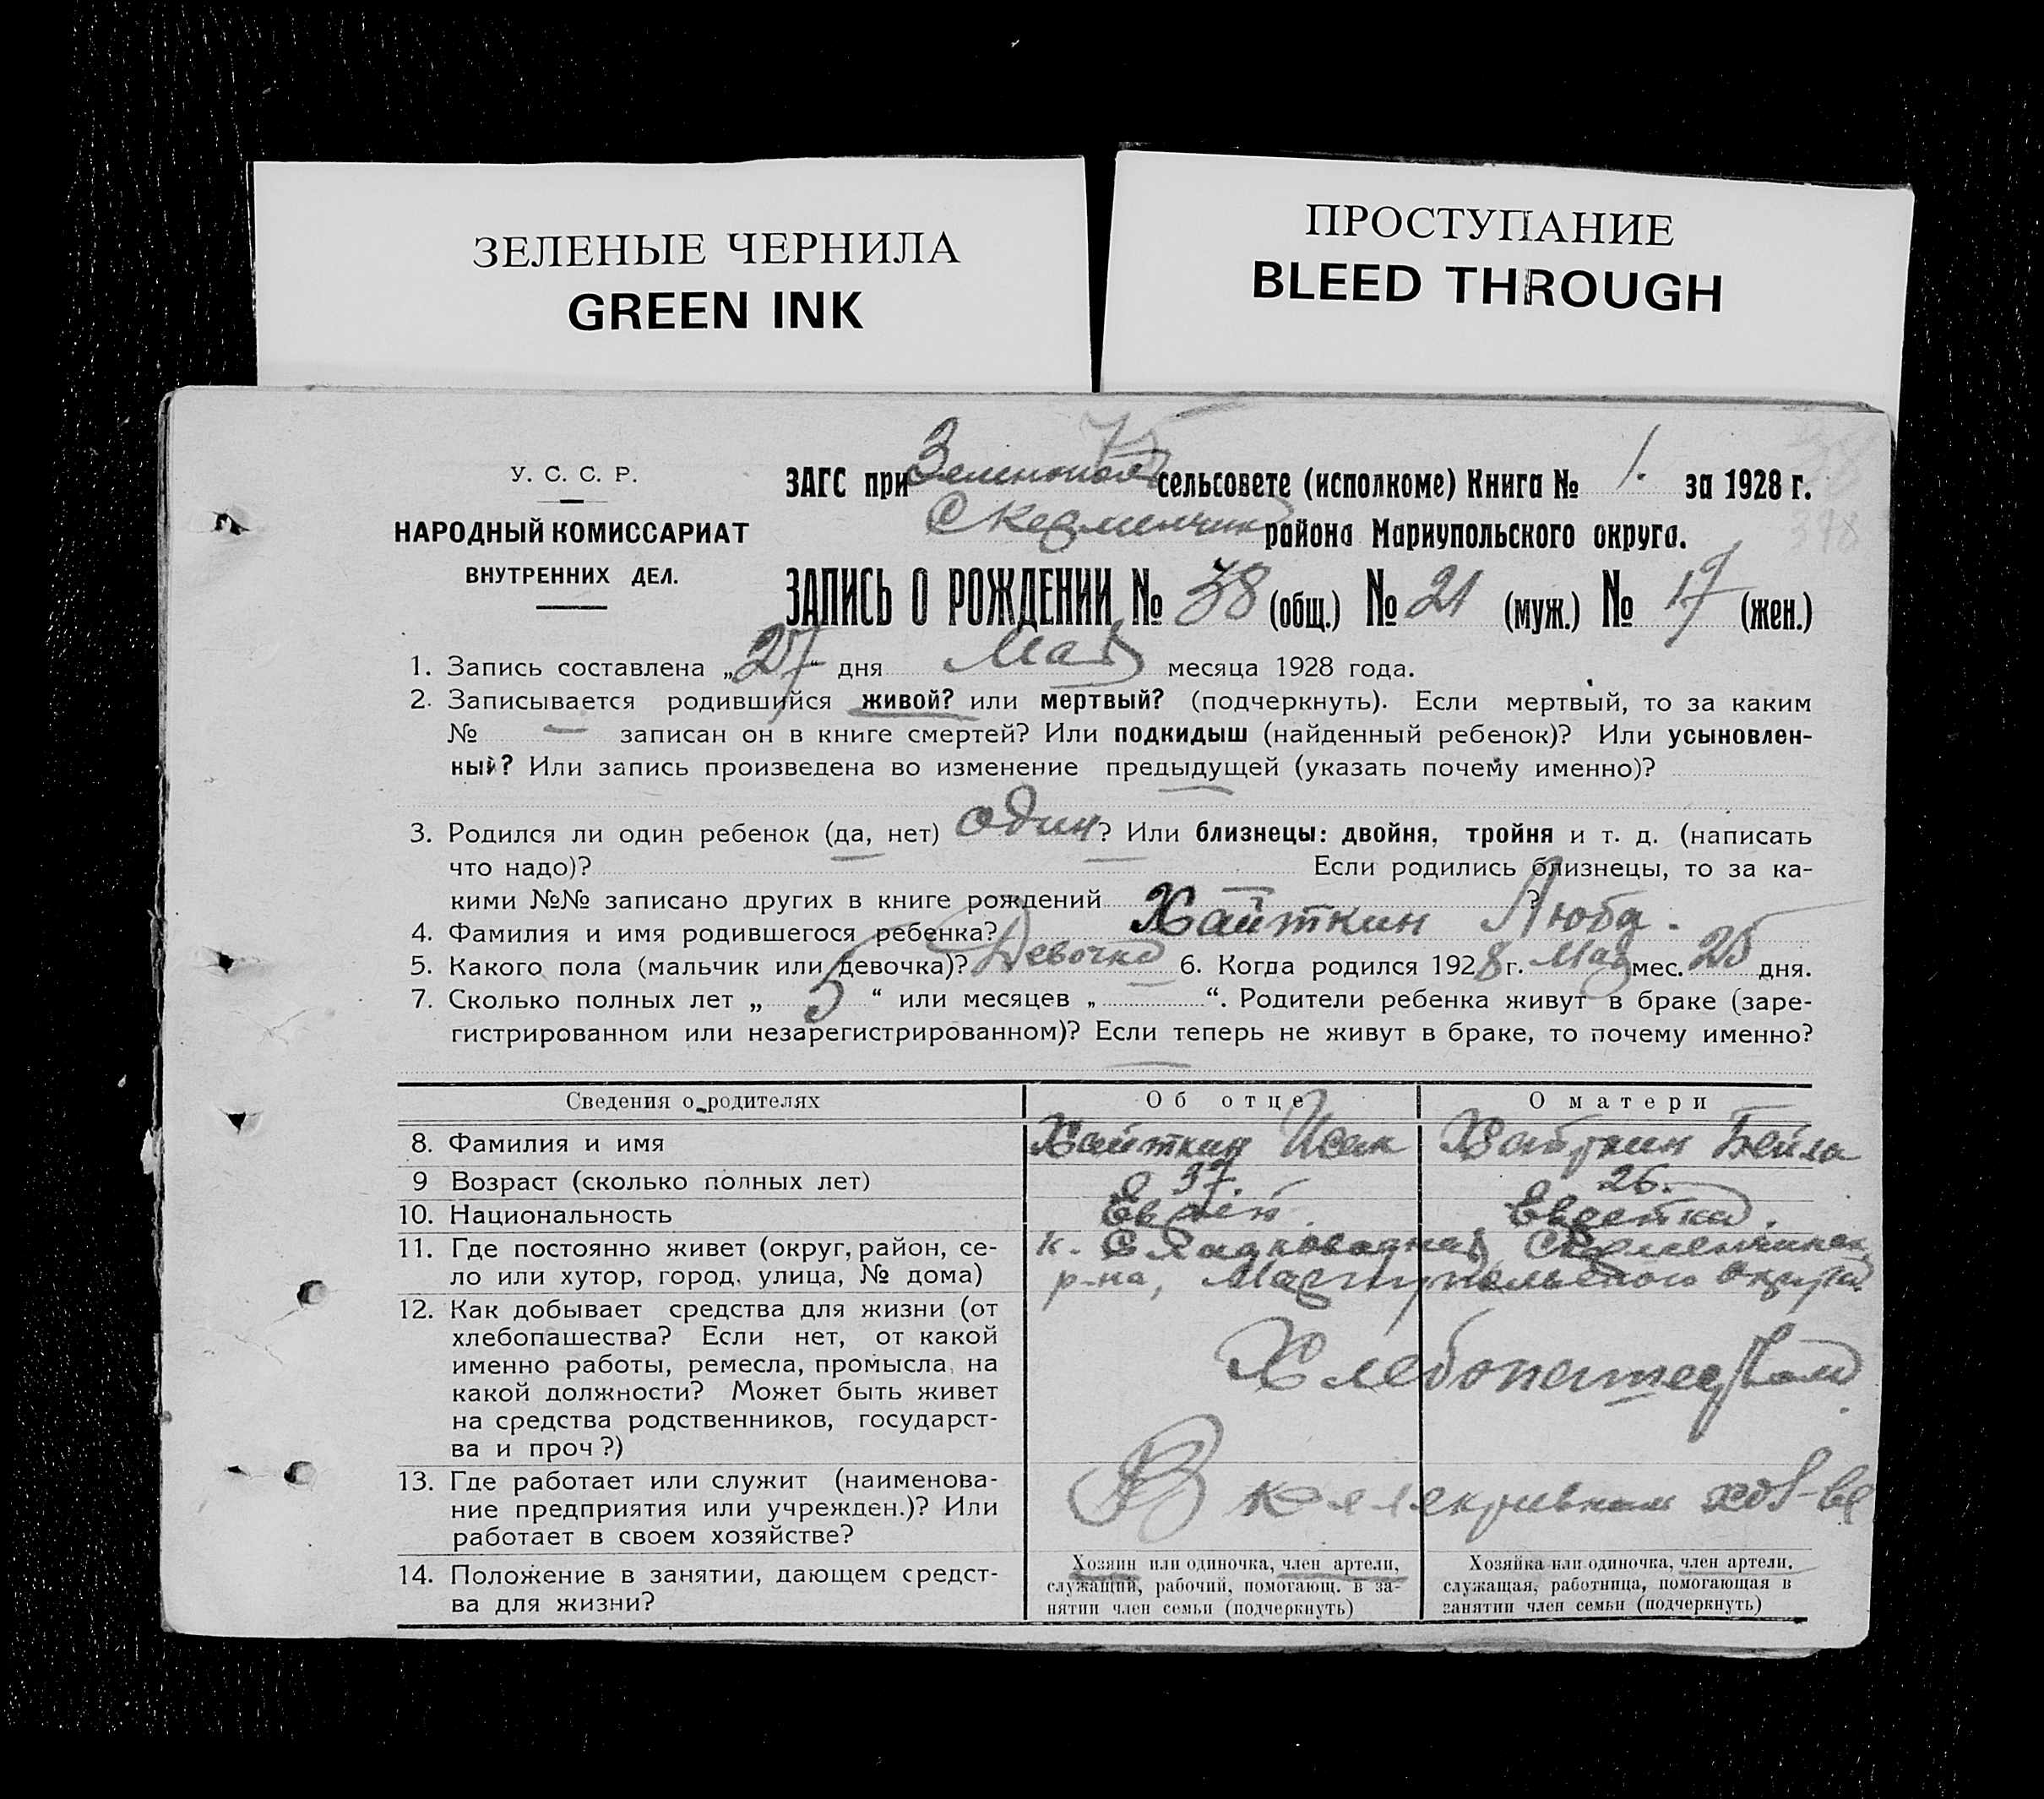 ЗЕЛЕНЫЕ ЧЕРНИЛА
GREEN INK
ПРОСТУПАНИЕ
BLEED THROUGH
75
У. С. С. Р.
НАРОДНЫЙ КОМИССАРИАТ
ВНУТРЕННИХ ДЕЛ.
ЗАГС при сельсовете (исполкоме) Книга № 1. за 1928 г.
района Мариупольского округа.
ЗАПИСЬ О РОЖДЕНИИ № 38 (общ.) № 21 (муж.) № 17 (жен.)
1. Запись составлена „27“ дня Мая месяца 1928 года.
2. Записывается родившийся живой? или мертвый? (подчеркнуть). Если мертвый, то за каким
№ — записан он в книге смертей? Или подкидыш (найденный ребенок)? Или усыновлен-
ный? Или запись произведена во изменение предыдущей (указать почему именно)?
3. Родился ли один ребенок (да, нет) один? Или близнецы: двойня, тройня и т. д. (написать
что надо)? Если родились близнецы, то за ка-
кими №№ записано других в книге рождений ?
4. Фамилия и имя родившегося ребенка? Хайткин Люба.
5. Какого пола (мальчик или девочка)? Девочка 6. Когда родился 1928 г. Мая мес. 25 дня.
7. Сколько полных лет „ 5 “ или месяцев „ “. Родители ребенка живут в браке (заре-
гистрированном или незарегистрированном)? Если теперь не живут в браке, то почему именно?
Сведения о родителях Об отце О матери
8. Фамилия и имя Хайткин Исак Хайткин Бейла
9 Возраст (сколько полных лет) 37. 26.
10. Национальность Еврей. Еврейка.
11. Где постоянно живет (округ, район, се-
ло или хутор, город, улица, № дома)
к. Сладководная
р-на, Мариупольского округа
12. Как добывает средства для жизни (от
хлебопашества? Если нет, от какой
именно работы, ремесла, промысла, на
какой должности? Может быть живет
на средства родственников, государст-
ва и проч ?)
Хлебопашеством
13. Где работает или служит (наименова-
ние предприятия или учрежден.)? Или
работает в своем хозяйстве?
В коллективном хоз-ве
14. Положение в занятии, дающем средст-
ва для жизни?
Хозяин или одиночка, член артели,
служащий, рабочий, помогающ. в за-
нятии член семьи (подчеркнуть)
Хозяйка или одиночка, член артели.
служащая, работница, помогающая в
занятии член семьи (подчеркнуть)